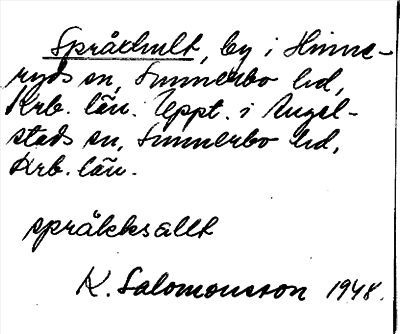 Språkhult, by i Hinne-
ryds sn, Sunnerbo hd,
Krb. län. Uppt. i Angel-
stads sn, Sunnerbo hd,
Krb. län.
språkksallt
K. Salomonsson 1948.